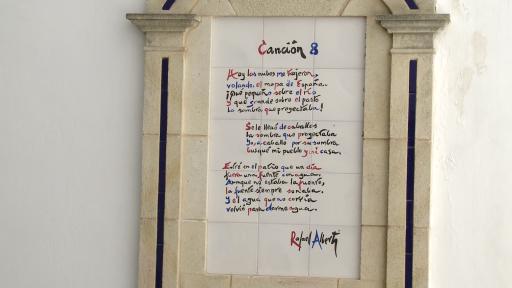 Canción 8
Hoy las nubes me trajeron,
volando, el mapa de España.
¡Qué pequeño sobre el río
y qué grande sobre el pasto
la sombra que proyectaba!
Se le llenó de caballos
la sombra que proyectaba.
Yo, a caballo, por su sombra
busqué mi pueblo y mi casa.
Entré en el patio que un día
fuera una fuente con agua.
Aunque no estaba la fuente,
la fuente siempre sonaba.
Y el agua que no corría
volvió para darme agua.
Rafael Alberti